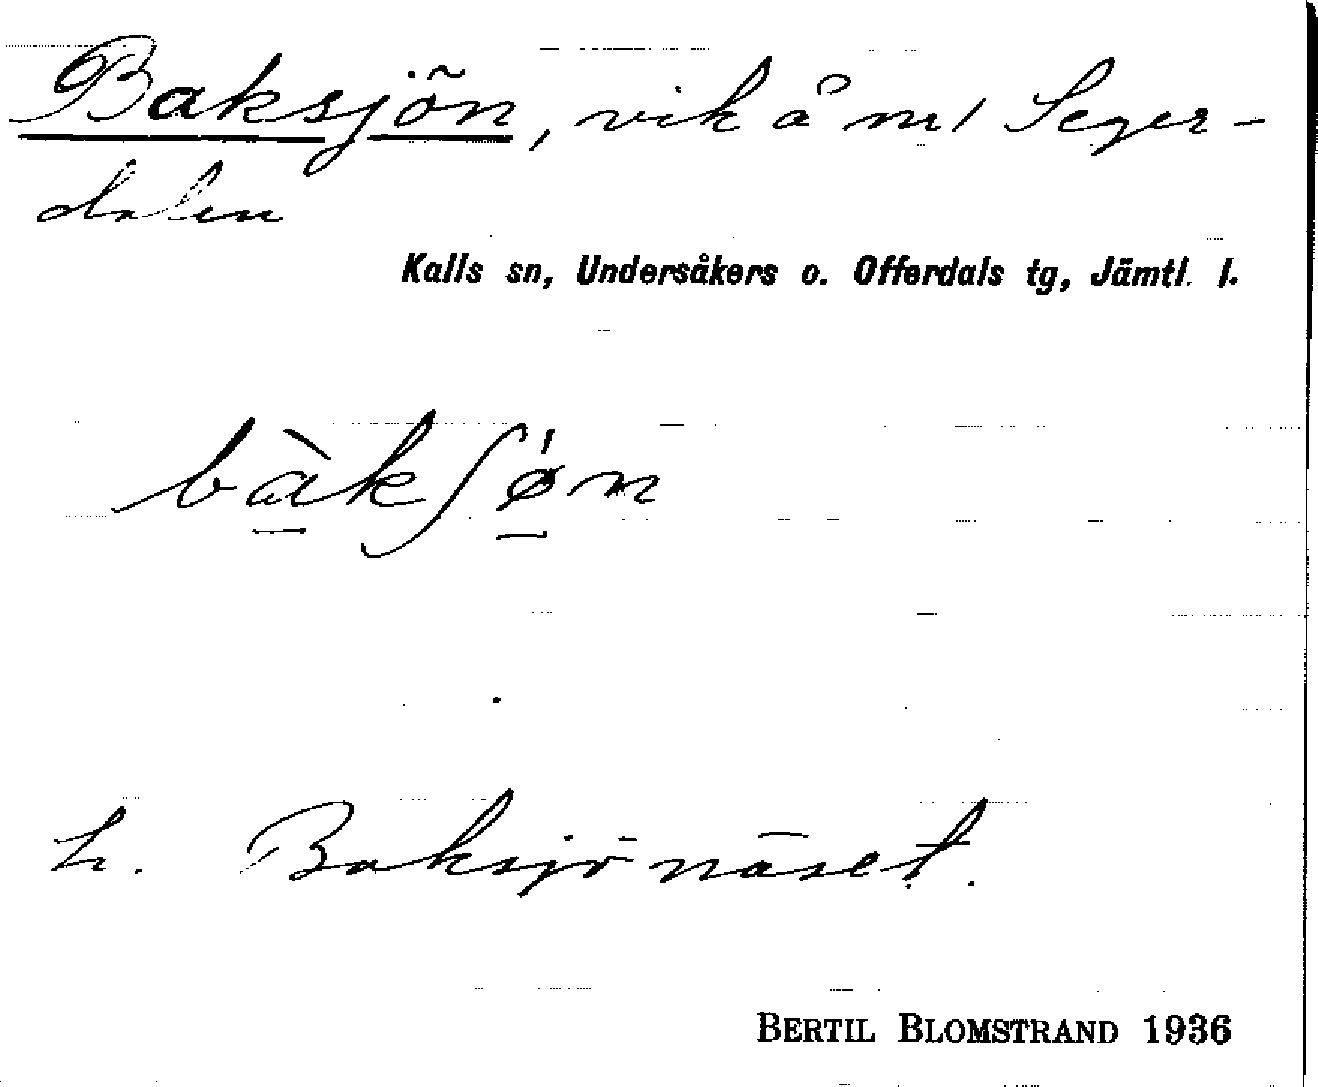 Baksjön, vik å m/ Seger-
dalen
Kalls sn, Undersåkers o. Offerdals tg, Jämtl. l.
bàkʃǿn
h. Baksjönäset.
BERTIL BLOMSTRAND 1936